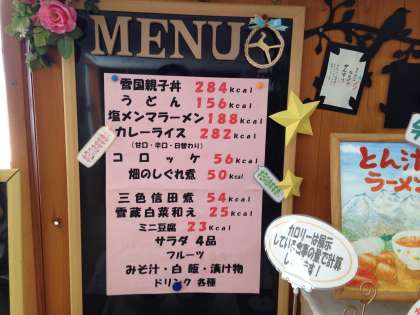 MENU
雪国親子丼 284Kcal
うどん 156Kcal
塩メンマラーメン 188Kcal
カレーライス 282Kcal
(甘口・辛口・日替わり)
コロッケ 56Kcal
畑のしぐれ煮 50Kcal
三色信田煮 54Kcal
雪蔵白菜和え 25Kcal
ミニ豆腐 23Kcal
サラダ 4品
フルーツ
みそ汁・白飯・漬け物
ドリンク 各種
とん汁
ラーメン
カロリーは展示
している食事の量で計算
します!